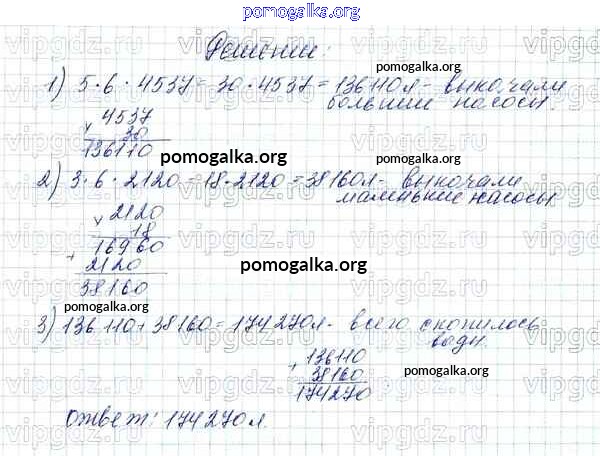 pomogalka.org
Решение:
1) 5·6·4537=30·4537=136110л- выкачали
большие насосы.
4537
× 30
136110
pomogalka.org
pomogalka.org
2) 3·6·2120=18·2120=38160л- выкачали
маленькие насосы
2120
× 18
16960
+ 2120
38160
pomogalka.org
pomogalka.org
3) 136110+38160=174270л- всего скопилось
воды
136110
+ 38160
174270
pomogalka.org
Ответ: 174270л
vipgdz.ru
pomogalka.org